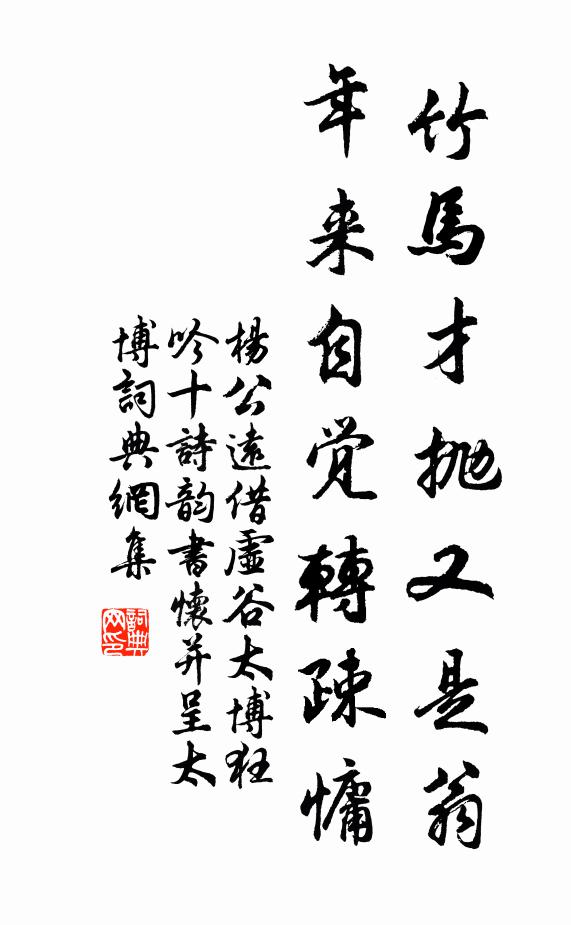 竹馬才抛又是翁
年来自覚轉疎慵
楊公遠借虛谷太博狂
吟十詩韵書懷并呈太
博詞典網集
詞典网印